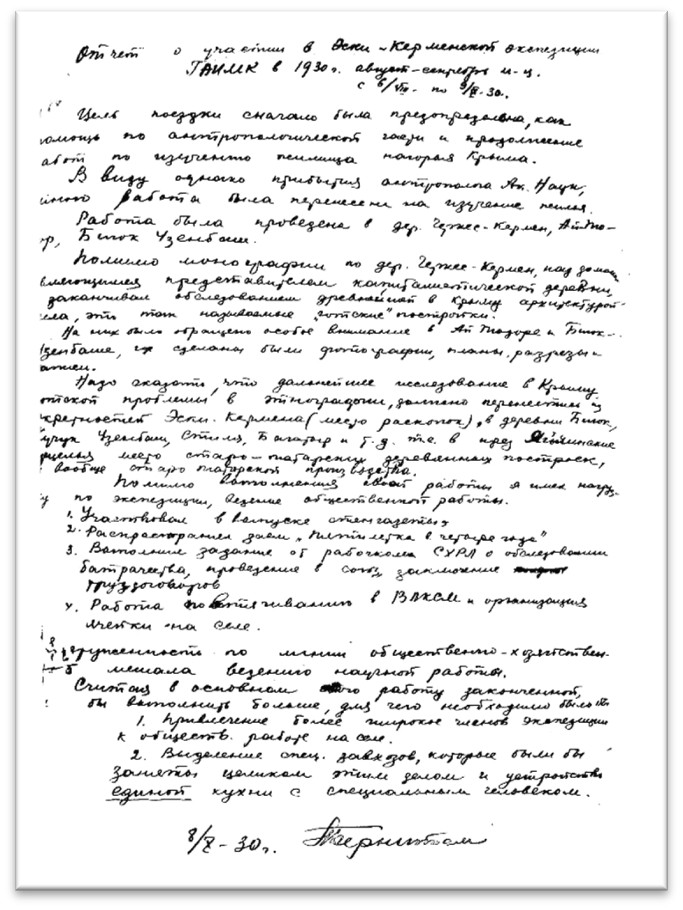 Отчет о участии в Эски-Керменской экспедиции
ГАИМК в 1930 г. август-сентябрь м-ц.
с 6/VIII- по 9/X-30.
Цель поездки сначало была предопределена, как
омощь по антропологической части и продолжение
абот по изучению жилища нагорья Крыма.
В виду однако прибытия антрополога Ак. Наук,
работа была перенесена на изучение жилья.
Работа была проведена в дер. Черкес-Кермен, Ай-То-
ор, Биюк Узенбаш.
Помимо монографии по дер. Черкес-Кермен, над домом
являющимся представителем капиталистической деревни,
заканчивал обследованием древнейшей в Крыму архитектурой
села, это так называемые „готские" постройки.
На них было обращено особое внимание в Ай Тодоре и Биюк-
Узенбаше, их сделаны были фотографии, планы, разрезы и
Надо сказать, что дальнейшее исследование в Крыму
отской проблемы в этнографии, должно перенестись из
крестностей Эски-Кермена (место раскопок), в деревни Биюк,
учук Узенбаш, Стиля, Багатыр и т.д. т.е. в пред
место старо-татарских деревянных построек,
вообще старо татарской производства.
Помимо выполнения своей работы я имел нагруз-
у по экспедиции, ведение общественной работы.
1. Участвовал в выпуске стенгазеты
2. Распространял заем „Пятилетка в четыре года"
3. Выполнил задание от рабочкома СХРЛ о обследовании
батрачества, проведение в союз, заключение
труддоговоров
4. Работа по втягиванию в ВЛКСМ и организация
ячейки на селе.
агруженность по линии общественно-хозяйствен-
мешала ведению научной работы.
Считая в основном работу законченной,
бы выполнить больше, для чего необходимо было бы
1. Привлечение более широкое членов экспедиции
к обществ. работе на селе.
2. Выделение спец. завхозов, которые были бы
заняты целиком этим делом и устройство
единой кухни с специальным человеком.
8/X-30 г. Бернштам